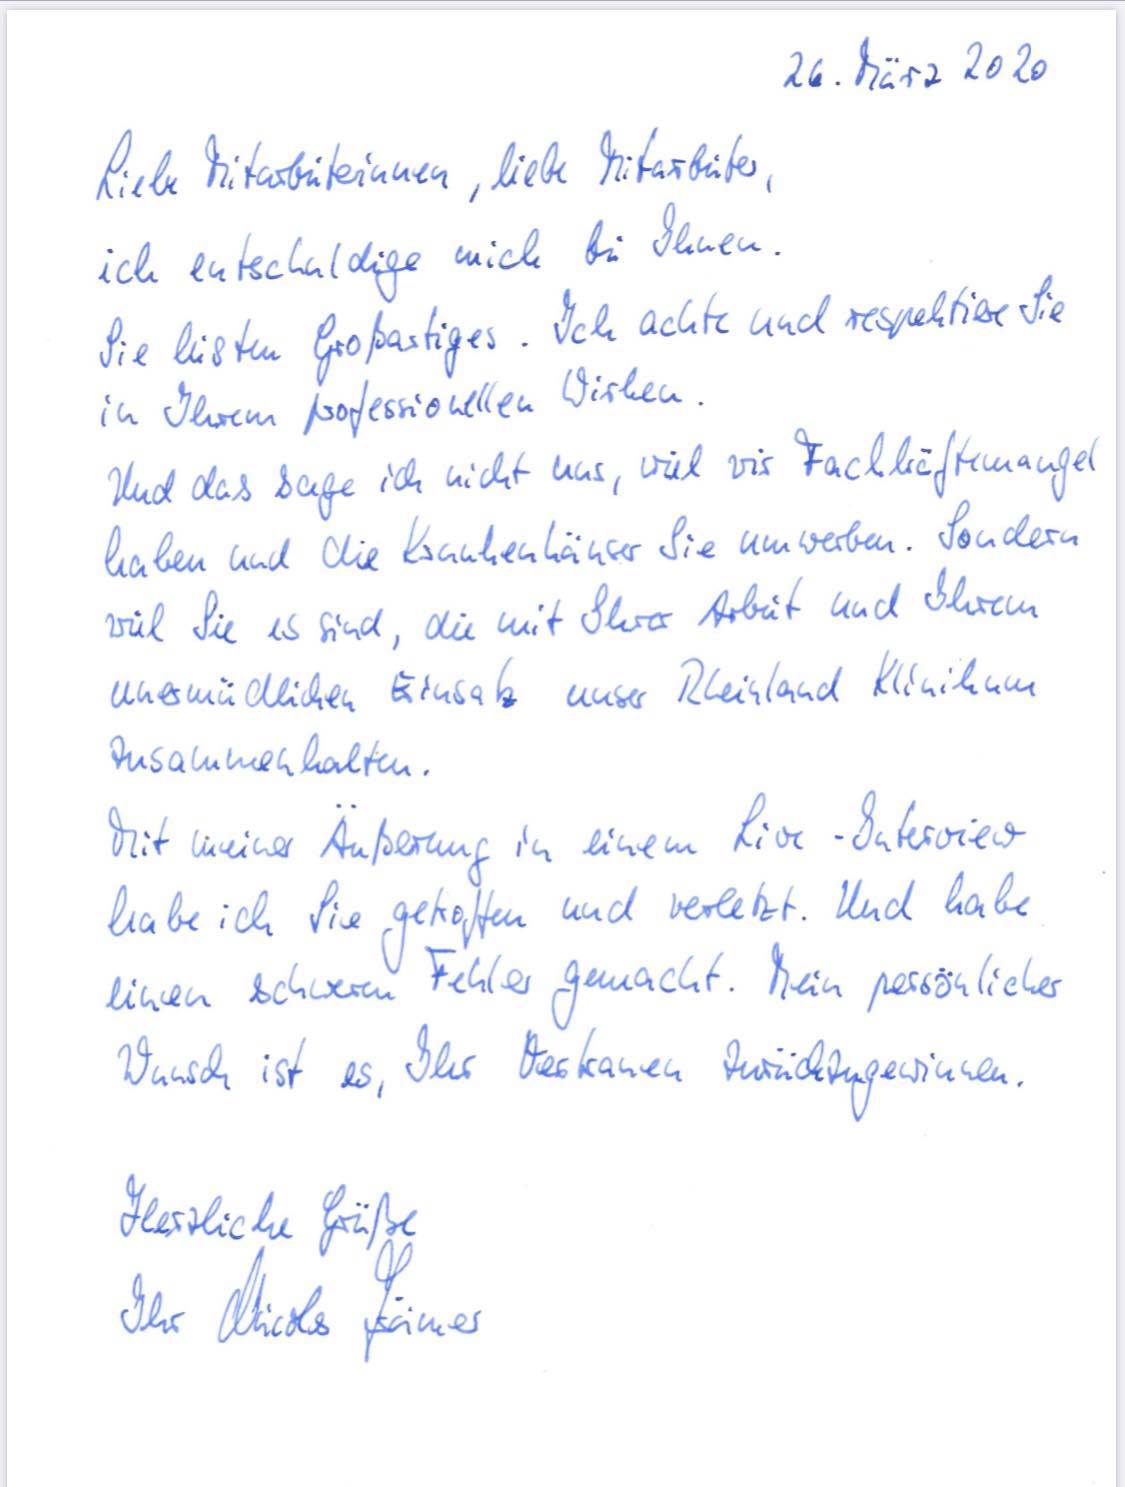 26. März 2020
Liebe Mitarbeiterinnen, liebe Mitarbeiter,
ich entschuldige mich bei Ihnen.
Sie leisten Großartiges. Ich achte und respektiere Sie
in Ihrem professionellen Wirken.
Und das sage ich nicht nur, weil wir Fachkräftemangel
haben und die Krankenhäuser Sie umwerben. Sondern
weil Sie es sind, die mit Ihrer Arbeit und Ihrem
unermüdlichen Einsatz unser Rheinland Klinikum
zusammenhalten.
Mit meiner Äußerung in einem Live-Interview
habe ich Sie getroffen und verletzt. Und habe
einen schweren Fehler gemacht. Mein persönlicher
Wunsch ist es, Ihr Vertrauen zurückzugewinnen.
Herzliche Grüße
Ihr Nicolas Krämer